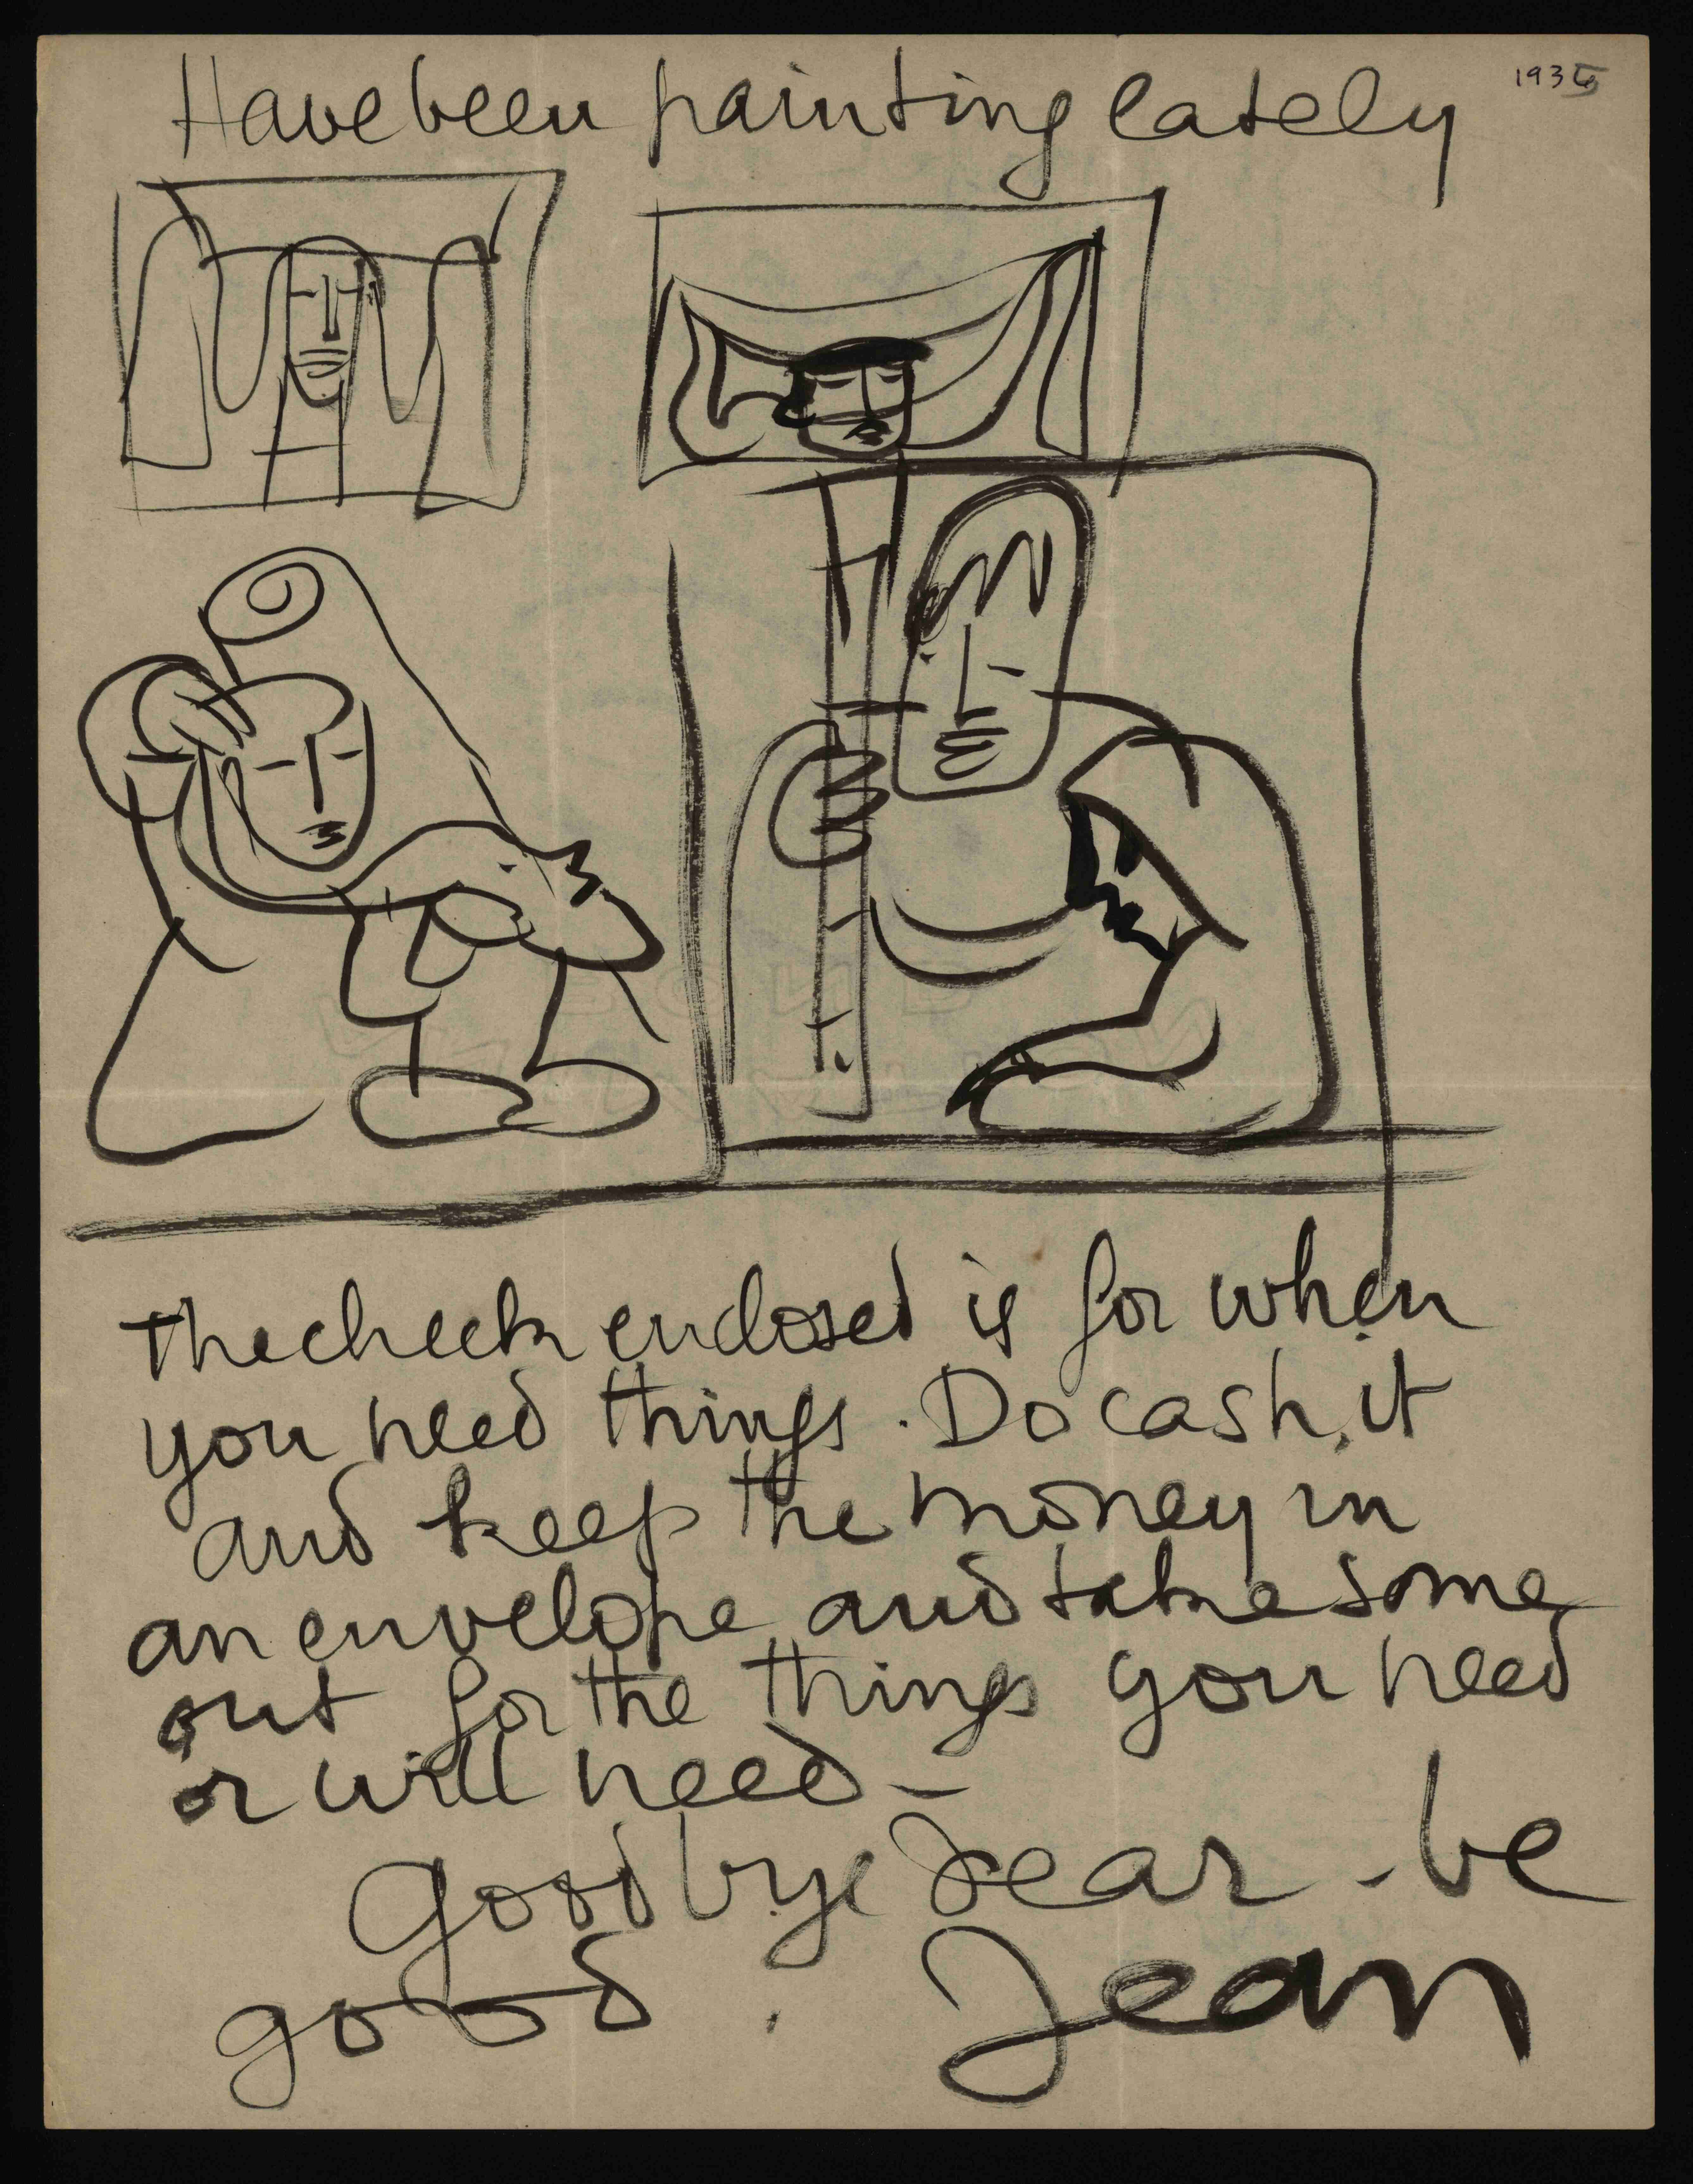 1935
Have been painting lately
the check enclosed is for when
you need things. Do cash it
and keep the money in
an envelope and take some
out for the things you need
or will need –
Goodbye Dear - be
good . Jean